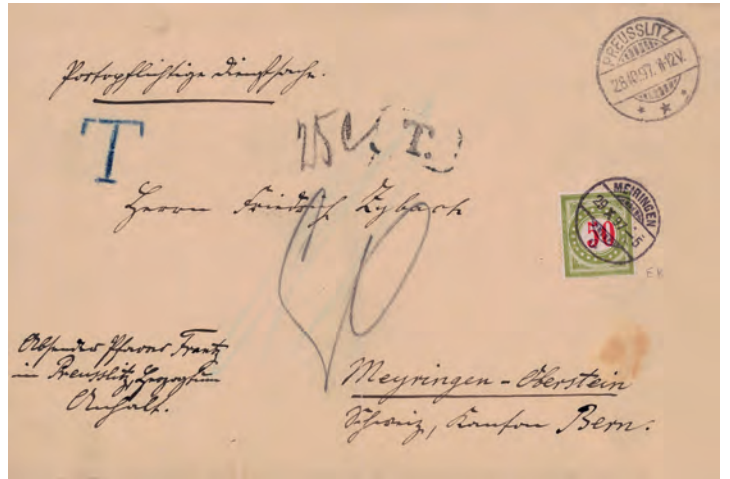 Portopflichtige Dienstsache.
PREUSSLITZ
28.10.97. 11-12V.
T
25
T.
Herrn Friedrich Zybach
MEIRINGEN
29.X.97.-5
50
EK
Absender Pfarrer Frantz
in Preusslitz, Herzogtum
Anhalt.
Meyringen-Oberstein
Schweiz, Kanton Bern.